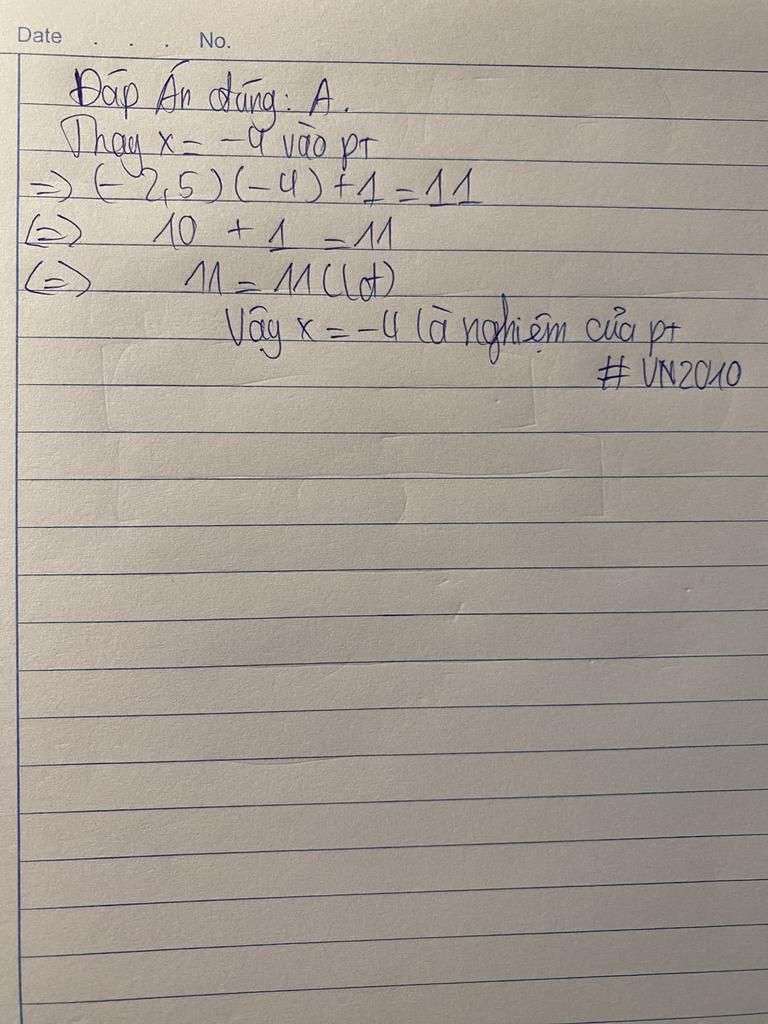 Date . . . No.
Đáp Án đúng: A.
Thay x = -4 vào pt
=> (-2,5)(-4)+1 = 11
(=) 10 + 1 = 11
(=) 11 = 11 (lđ)
Vậy x = -4 là nghiệm của pt
# VN2010